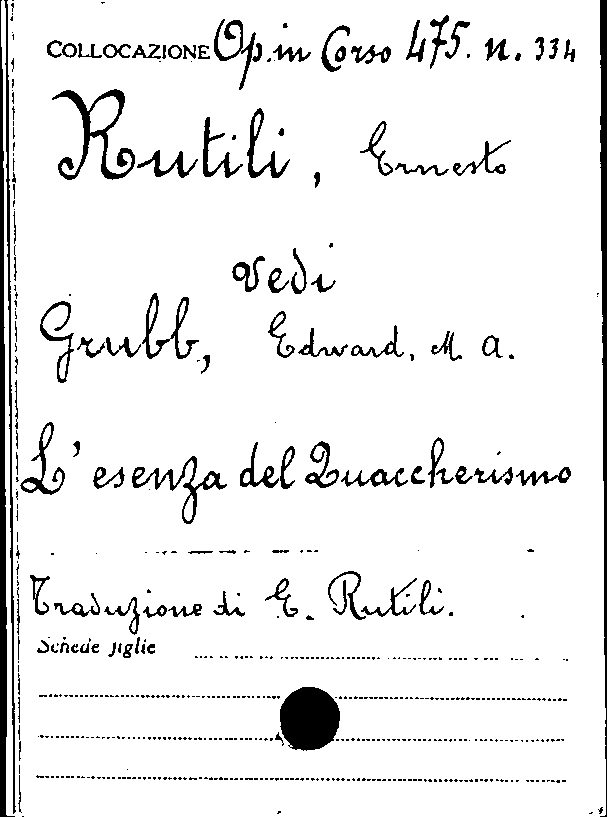 COLLOCAZIONE Op. in Corso 475. n. 334
Rutili, Ernesto
vedi
Grubb, Edward, M. A.
L'esenza del Quaccherismo
Traduzione di E. Rutili.
Schede figlie